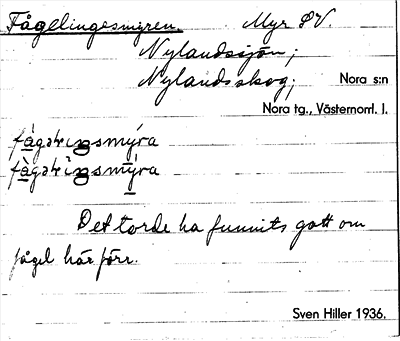 Fågelingesmyren. Myr SV.
Nylandsjön;
Nylandsskog; Nora s:n
Nora tg., Västernorrl. l.
Det torde ha funnits gott om
fågel här förr.
Sven Hiller 1936.